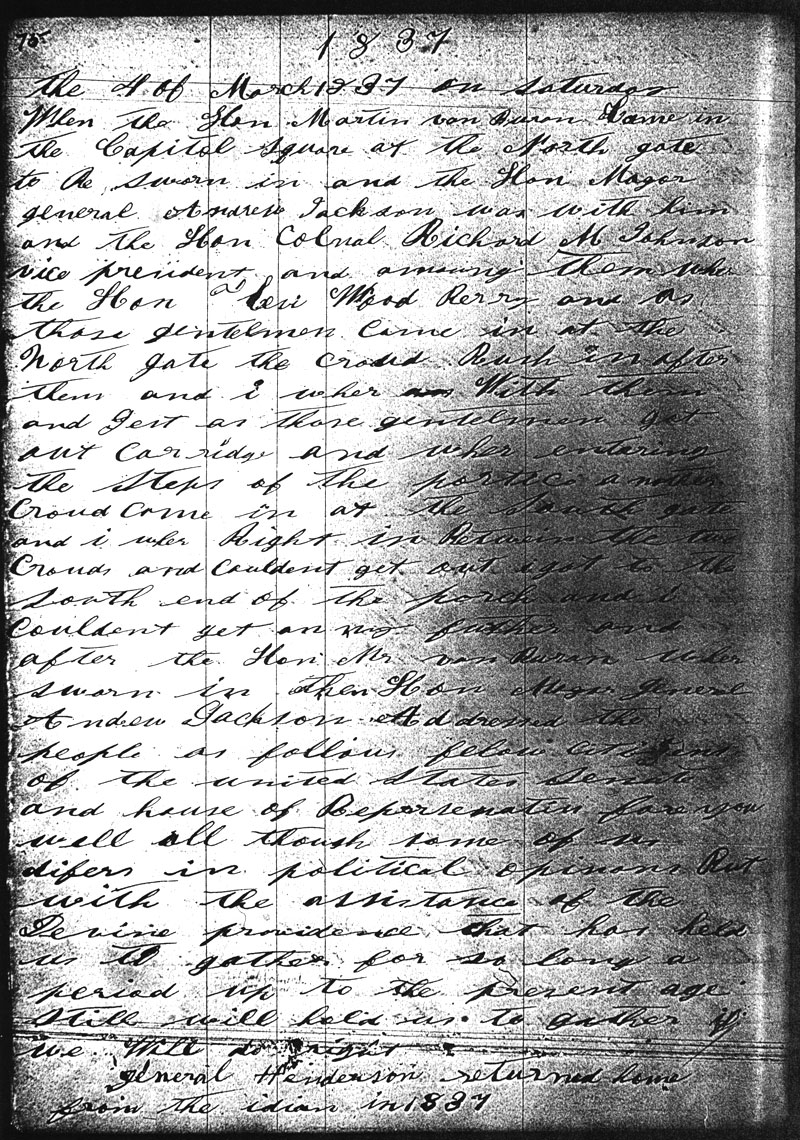 75
1837
the 4 of March 1837 on saturday
When the Hon Martin van Buron Came in
the Capitol Square at the North gate
to Be sworn in and the Hon Magor
general Andrew Jackson was with him
and the Hon Colnal Richard M Johnson
vice president and amoung them wher
the Hon Levi Wood Berry and as
those gentelmen Came in at the
North gate the croud Rush in after
them and i wher With them
and Jest as those gentelmen got
out Carridge and wher entering
the steps of the portico another
Croud Come in at the South gate
and i wher Right in Between the two
Crouds and Couldent get out i got to the
South end of the porch and i
Couldent get any further and
after the Hon Mr van Buran wher
sworn in then Hon Magor general
Andrew Jackson Addressed the
people as follows felow citizens
of the united States Senate
and house of Reparsenativs fare you
well all though some of us
difers in political opinons But
with the assistance of the
Devine providence that has held
us to gather for so long a
period up to the present age
still will hold us to gather if
we Will do right
general Henderson returned home
from the idian in 1837